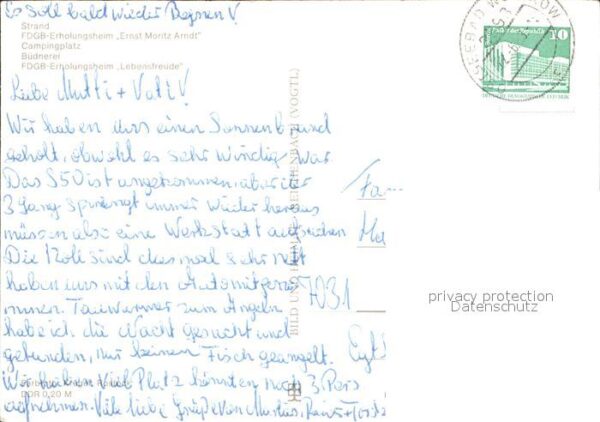 Es soll bald wieder Regnen!
Strand
FDGB-Erholungsheim „Ernst Moritz Arndt"
Campingplatz
Büdnerei
FDGB-Erholungsheim „Lebensfreude"
Liebe Mutti + Vati!
Wir haben uns einen Sonnenbrand
geholt, obwohl es sehr windig war.
Das S50 ist angekommen, aber der
3 Gang springt immer wieder heraus
müssen also eine Werkstatt aufsuchen
Die sind dies mal sehr nett
haben uns mit den Auto mitgeno-
mmen. Tauwürmer zum Angeln
habe ich die Nacht gesucht und
gefunden, nur keinen Fisch geangelt.
Wir haben viel Platz könnten noch 3 Pers
aufnehmen. Viele liebe Grüße von
DDR 0,20 M
BILD UND HEIMAT REICHENBACH (VOGTL)
SEEBAD
10
DEUTSCHE DEMOKRATISCHE REPUBLIK
Fa
Ha
7031
privacy protection
Datenschutz